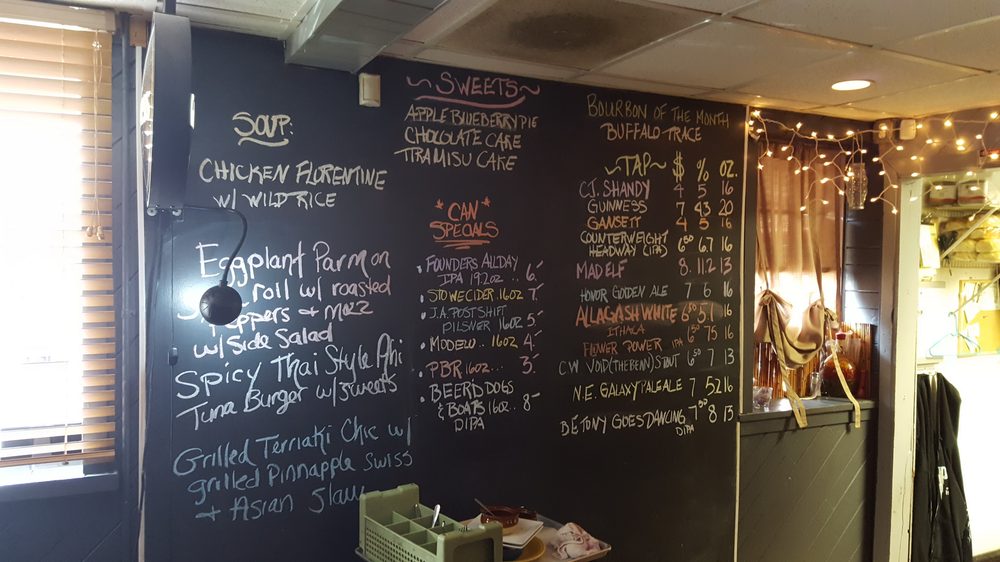 SOUP:
CHICKEN FLORENTINE
W/ WILD RICE
Eggplant Parm on
roll w/ roasted
Peppers + Mozz
w/ Side Salad
Spicy Thai Style Ahi
Tuna Burger w/ sweets
Grilled Terriaki Chic w/
grilled Pinnapple Swiss
+ Asian Slaw
~SWEETS~
APPLE BLUEBERRY PIE
CHOCOLATE CAKE
TIRAMISU CAKE
"CAN"
SPECIALS
• FOUNDERS ALLDAY
IPA 19.2oz .. 6.-
• STOWE CIDER.16OZ 7.-
• J.A. POST SHIFT
PILSNER 16OZ 5.-
• MODELO .. 16OZ 4.-
• PBR 16OZ... 3.-
• BEER DOGS
& BOATS 16OZ.. 8-
DIPA
BOURBON OF THE MONTH
BUFFALO TRACE
~TAP~ $ % OZ.
C.J. SHANDY 4 5 16
GUINNESS 7 43 20
GANSETT 4 5 16
COUNTERWEIGHT
HEADWAY (IPA) 6.50 6.7 16
MAD ELF 8. 11.2 13
HONOR GOLDEN ALE 7 6 16
ALLAGASH WHITE 6.50 5.1 16
ITHACA
FLOWER POWER IPA 6.50 7.5 16
CW VOID (THEBENN) STOUT 6.50 7 13
N.E. GALAXY PALE ALE 7 5.2 16
BETONY GOES DANCING 7.50 8 13
DIPA